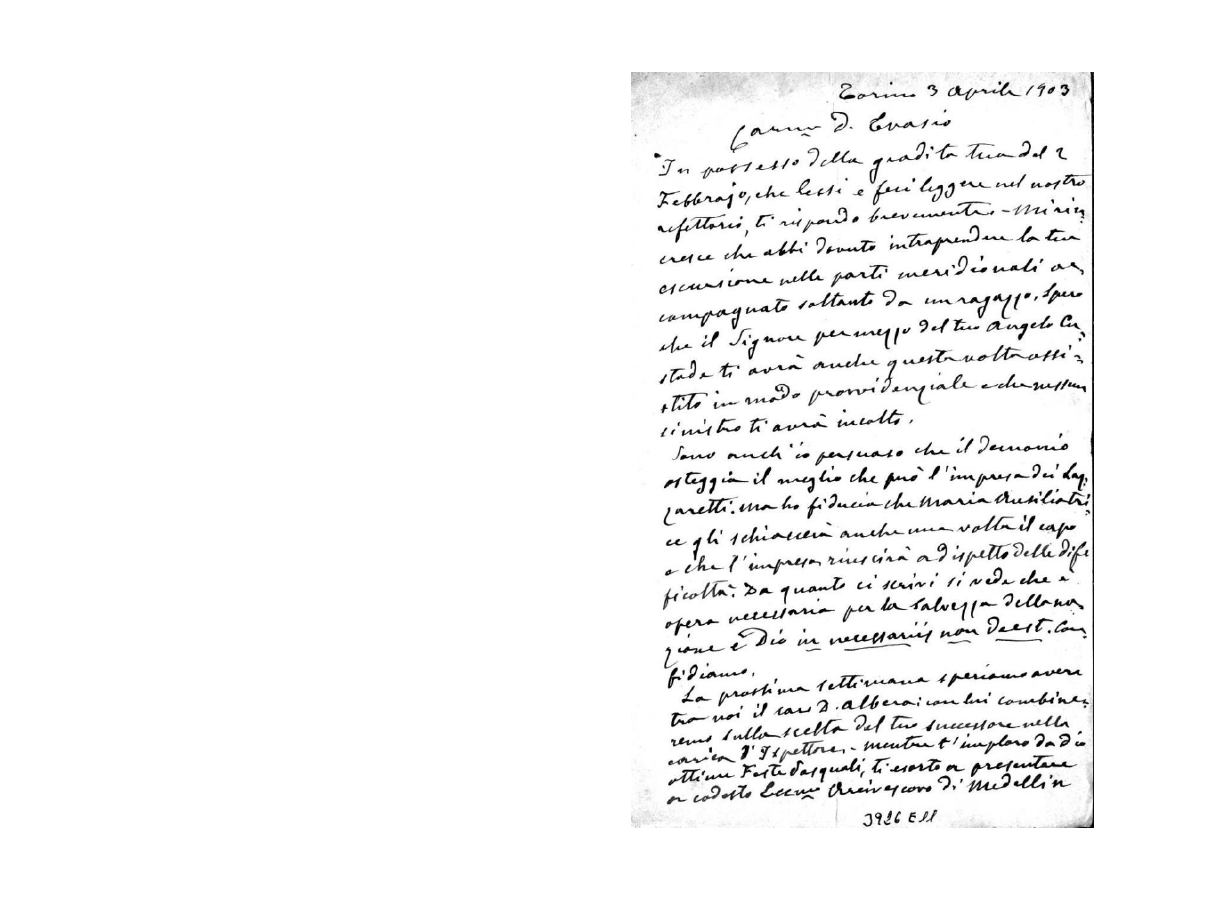 Torino 3 Aprile 1903
Carmo D. Evasio
In possesso della gradita tua del 2
Febbrajo, che lessi e feci leggere nel nostro
refettorio, ti rispondo brevemente - Mi rin-
cresce che abbi dovuto intraprendere la tua
escursione nelle parti meridionali ac-
compagnato soltanto da un ragazzo. Spero
che il Signore per mezzo del tuo Angelo Cu-
stode ti avrà anche questa volta assi-
stito in modo provvidenziale e che nessun
sinistro ti avrà incolto.
Sono anch'io persuaso che il demonio
osteggia il meglio che può l'impresa dei Laz-
zaretti. Ma ho fiducia che Maria Ausiliatri-
ce gli schiaccerà anche una volta il capo
e che l'impresa riuscirà a dispetto delle dif-
ficoltà. Da quanto ci scrivi si vede che è
opera necessaria per la salvezza della na-
zione e Dio in necessariis non deest. Con-
fidiamo.
La prossima settimana speriamo avere
tra noi il caro D. Albera: con lui combine-
remo sulla scelta del tuo successore nella
carica d'Ispettore. - Mentre t'imploro da Dio
ottime Feste Pasquali, ti esorto a presentare
a codesto Eccmo Arcivescovo di Medellin